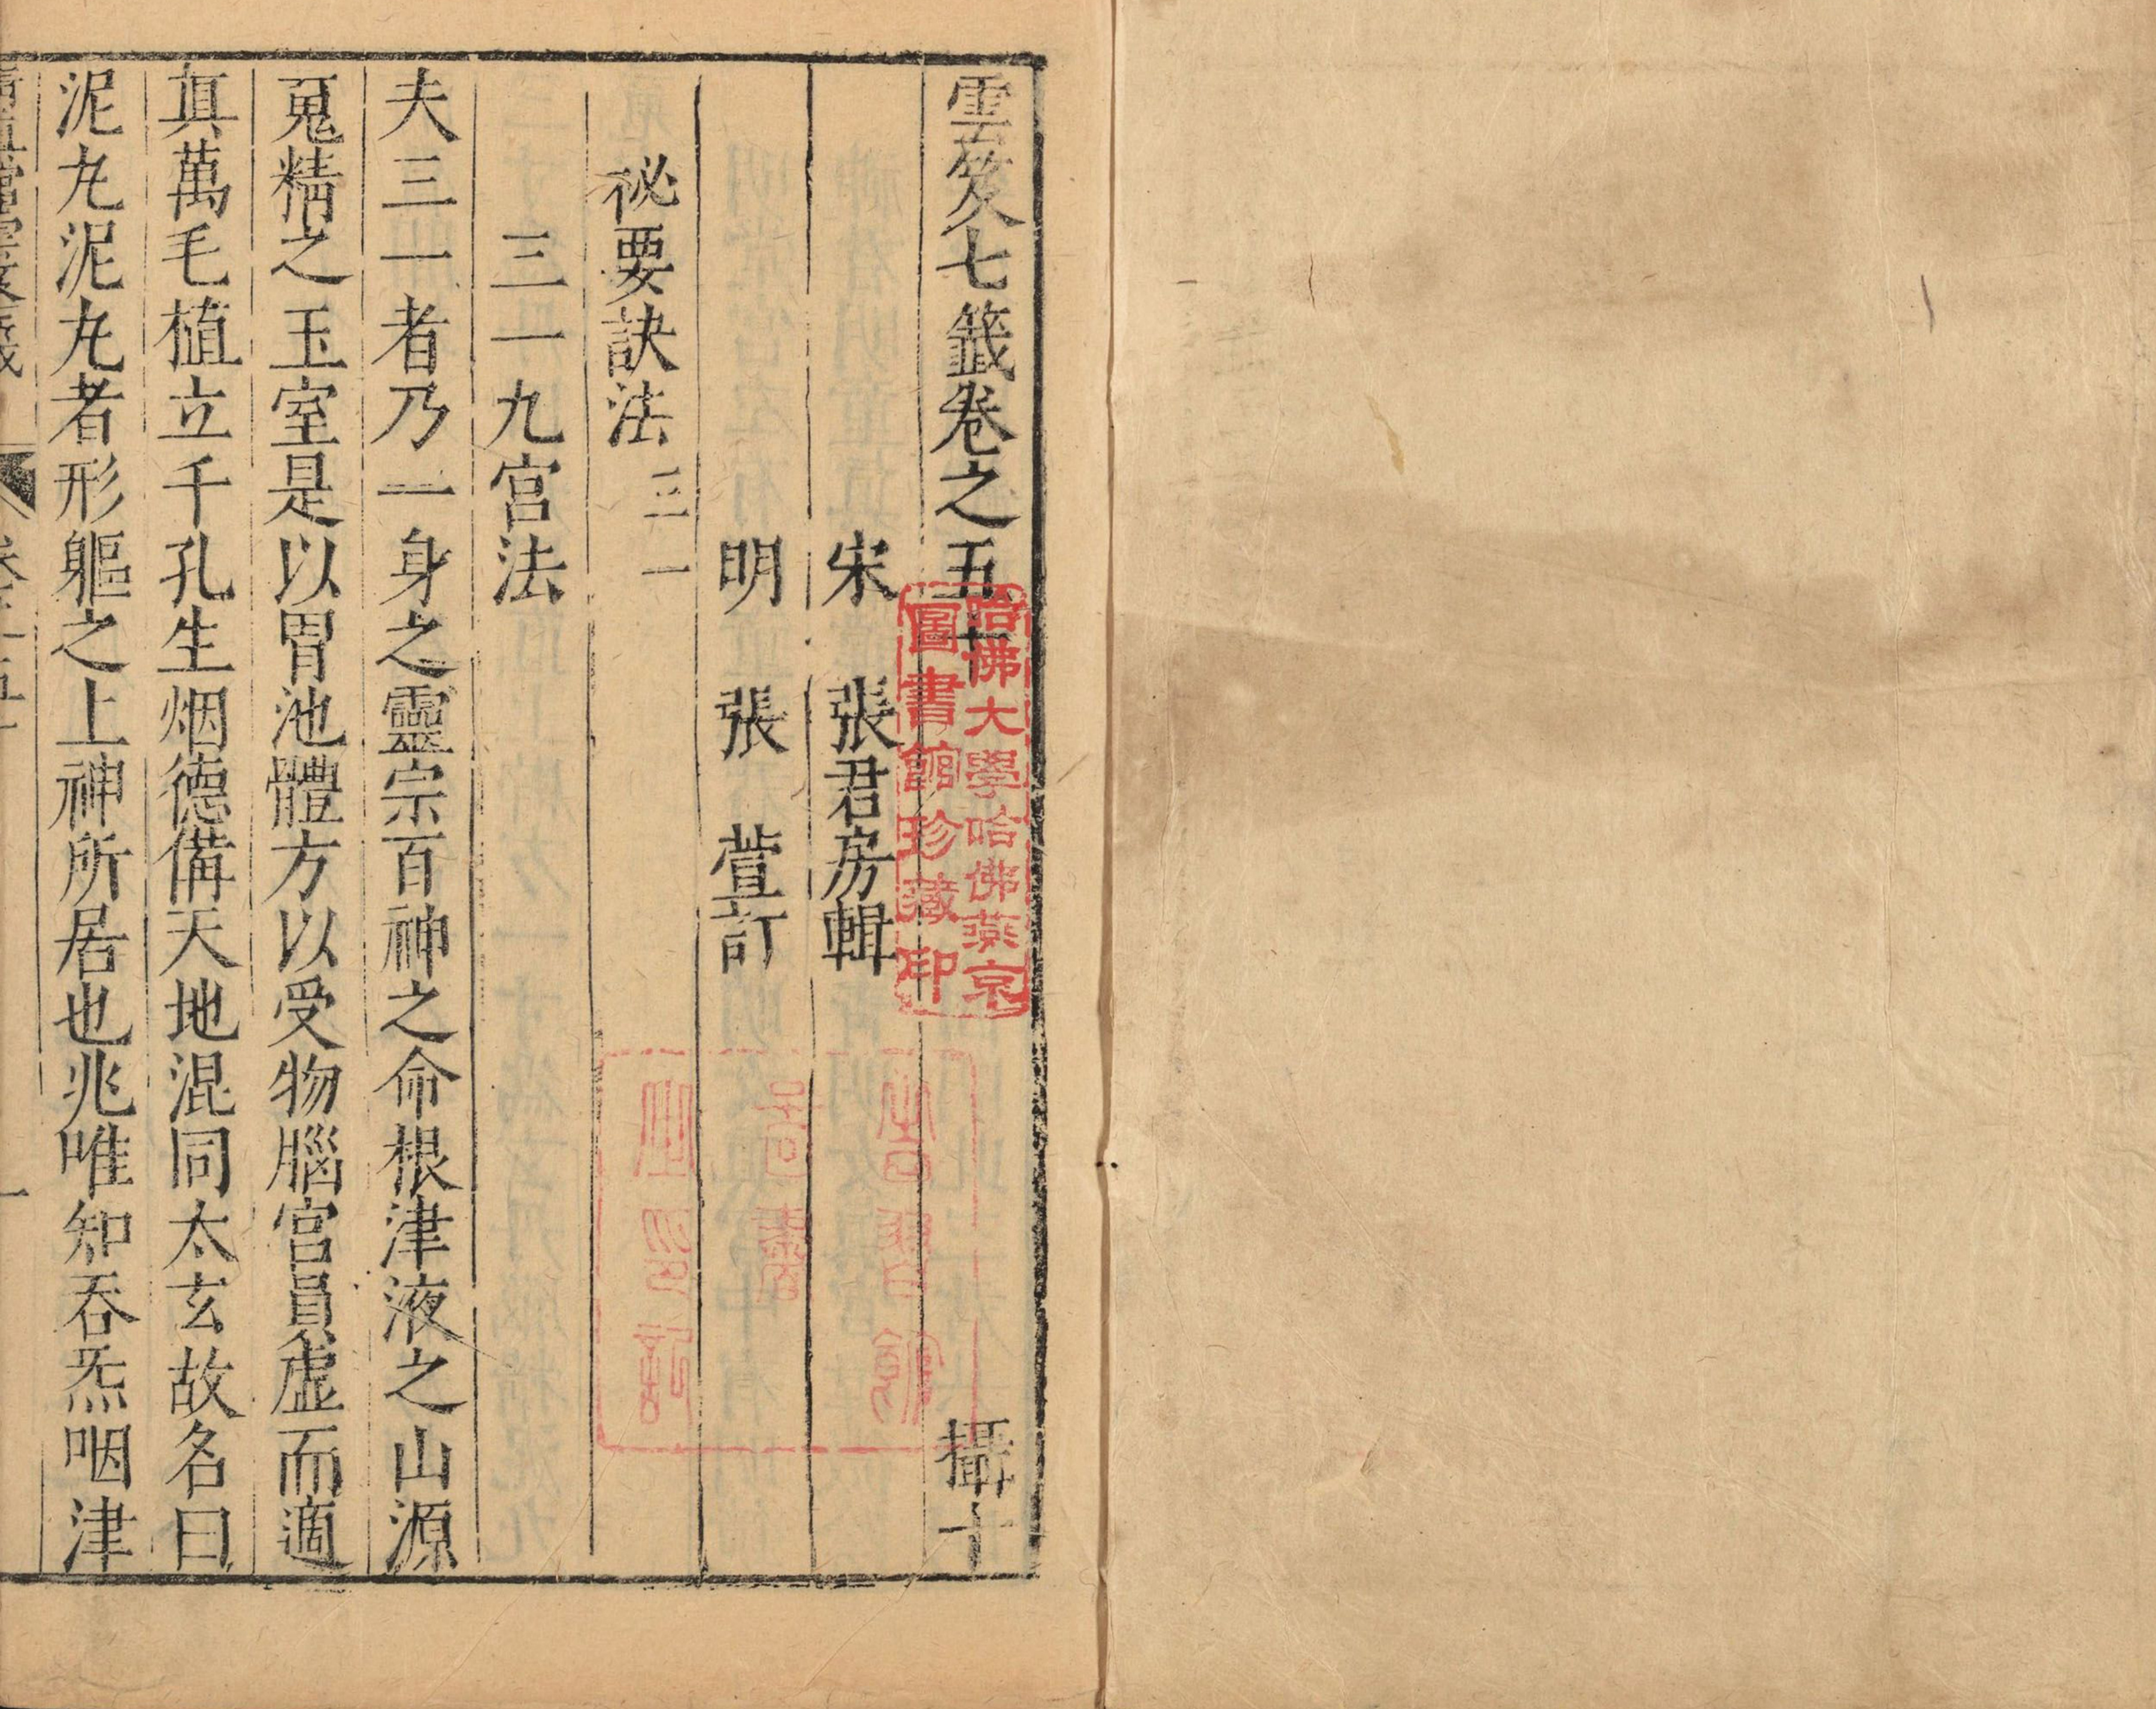 雲笈七籤卷之五十　攝十
宋　張君房輯
明　張　萱訂
祕要訣法三一
三一九宮法
夫三一者乃一身之靈宗百神之命根津液之山源
䰟精之玉室是以胃池體方以受物腦宮員虛而適
眞萬毛植立千孔生烟德備天地混同太玄故名曰
泥丸泥丸者形軀之上神所居也兆唯知吞炁咽津
哈佛大學哈佛燕京
圖書館珍藏印